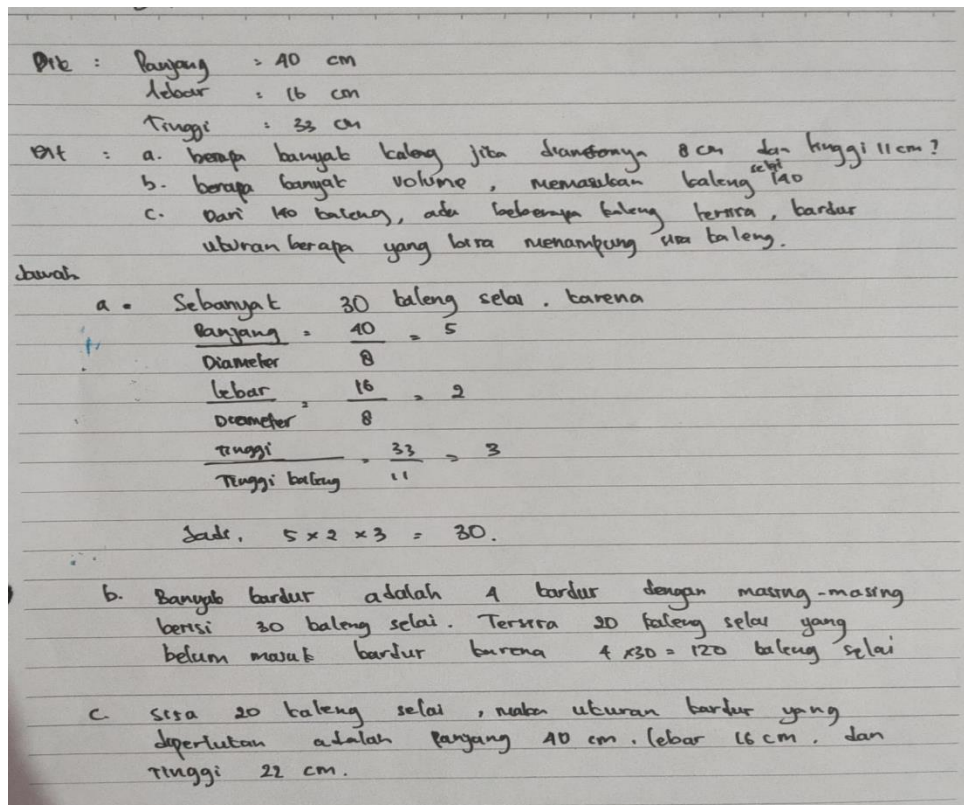 Dik : Panjang = 40 cm
lebar : 16 cm
Tinggi : 33 cm
Dit : a. berapa banyak kaleng jika diameternya 8 cm dan tinggi 11 cm?
b. berapa banyak volume, memasukan kaleng selai 140
c. Dari 140 kaleng, ada beberapa kaleng tersisa, kardus
ukuran berapa yang bisa menampung sisa kaleng.
Jawab
a. Sebanyak 30 kaleng selai. karena
Panjang = 40 = 5
Diameter 8
lebar = 16 = 2
Diameter 8
Tinggi = 33 = 3
Tinggi kaleng 11
Jadi, 5 x 2 x 3 = 30.
b. Banyak kardur adalah 4 kardur dengan masing-masing
berisi 30 kaleng selai. Tersisa 20 kaleng selai yang
belum masuk kardur karena 4 x 30 = 120 kaleng selai
c. sisa 20 kaleng selai, maka ukuran kardur yang
diperlukan adalah Panjang 40 cm. lebar 16 cm. dan
Tinggi 22 cm.